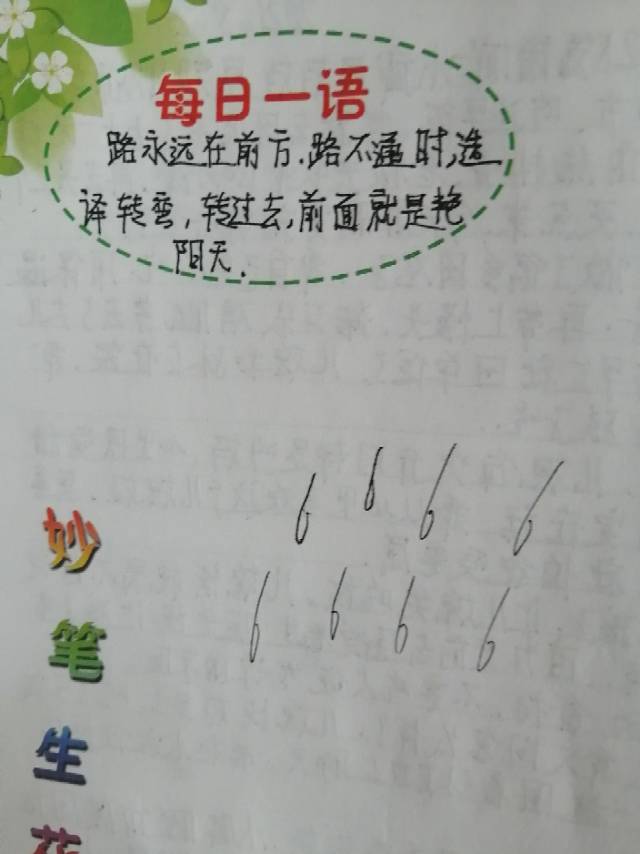 每日一语
路永远在前方.路不通时,选
译转弯,转过去,前面就是艳
阳天.
6 6 6 6
6 6 6 6
妙
笔
生
花